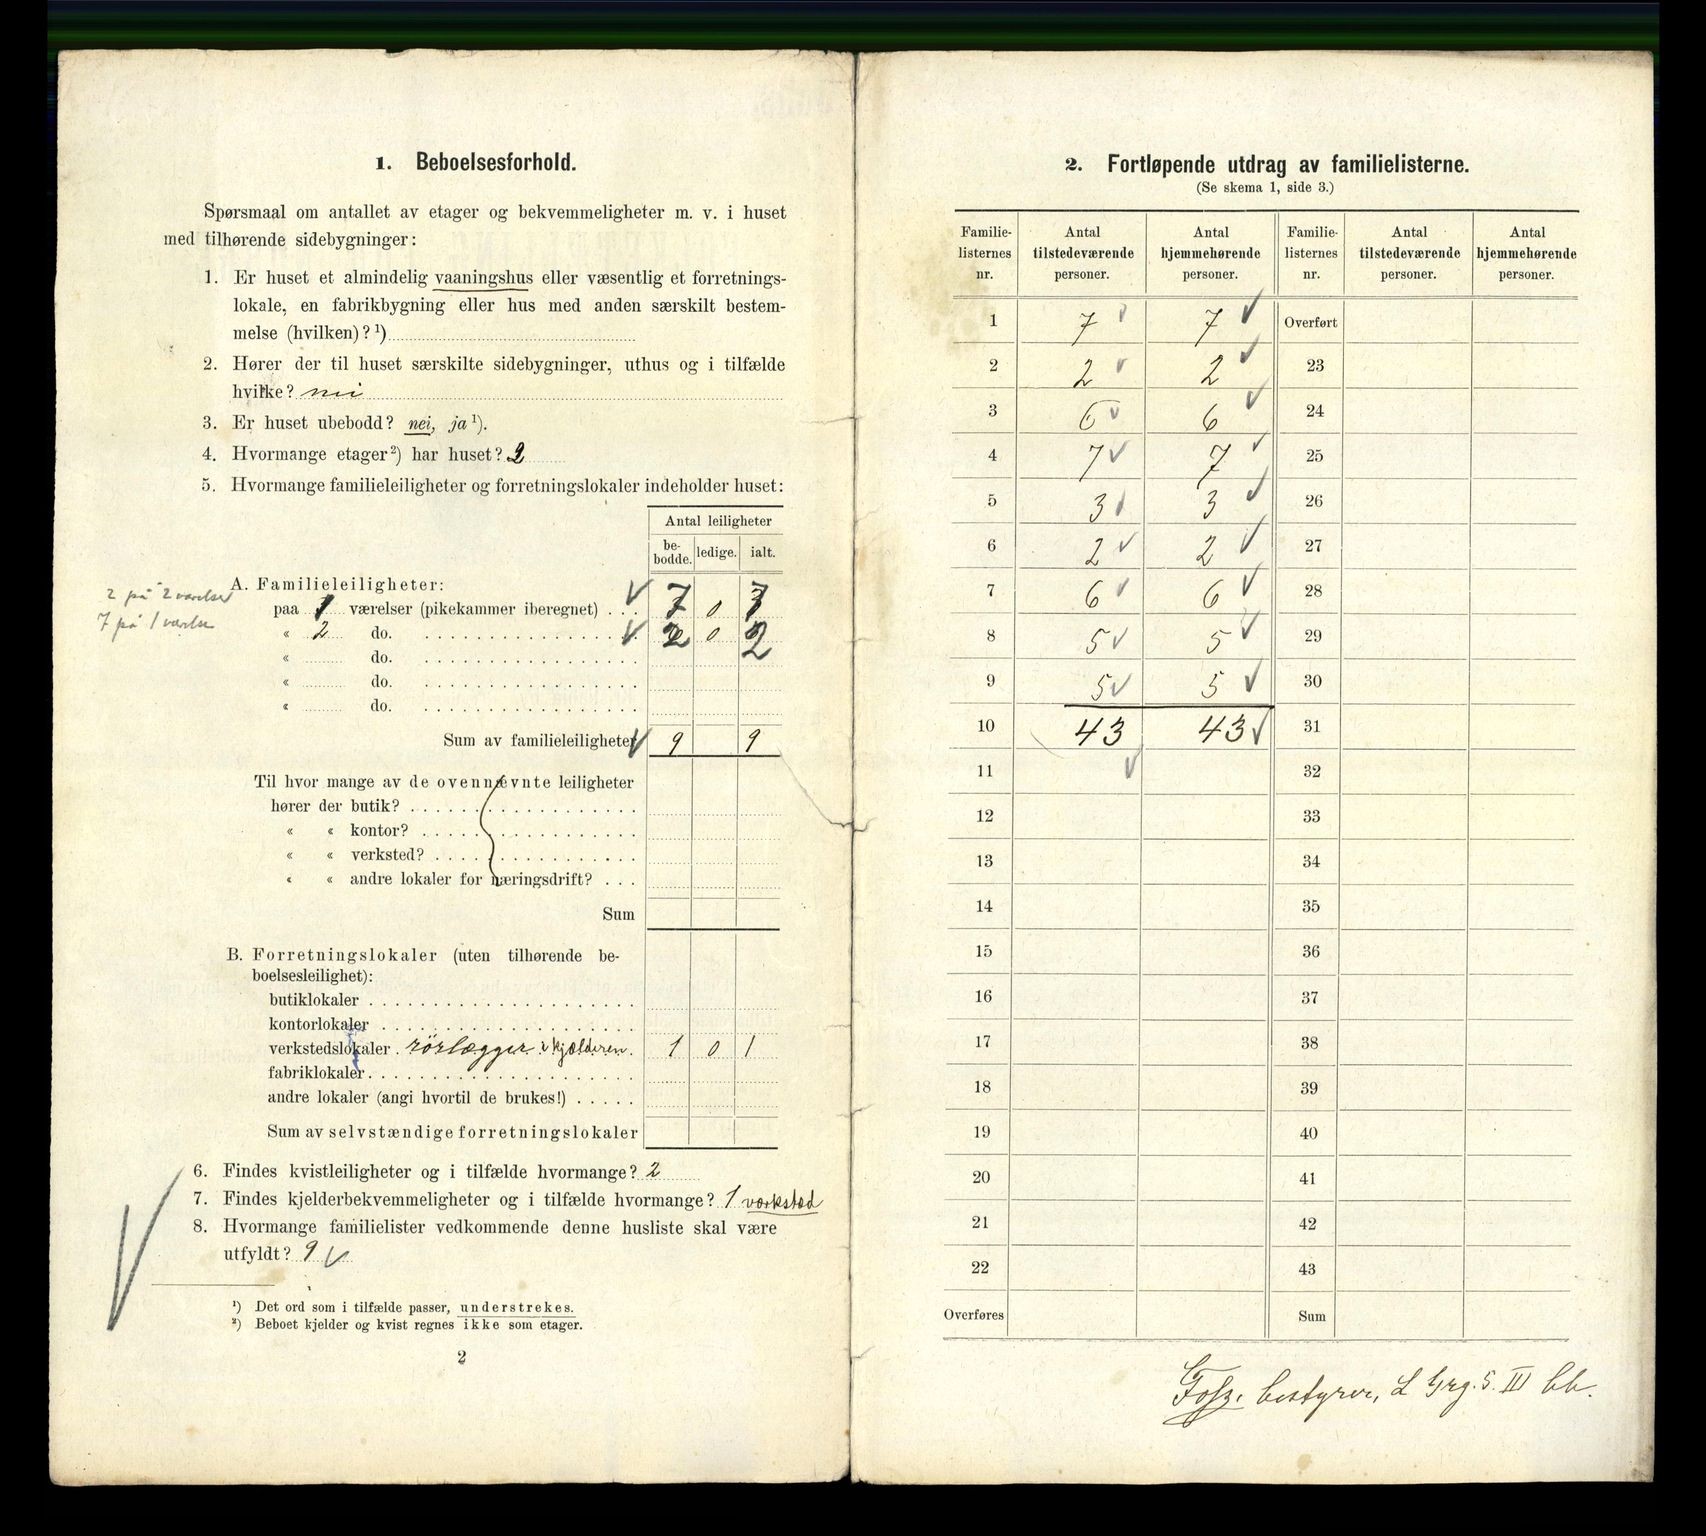 1. Beboelsesforhold.
Spørsmaal om antallet av etager og bekvemmeligheter m. v. i huset
med tilhørende sidebygninger:
1. Er huset et almindelig vaaningshus eller væsentlig et forretnings-
lokale, en fabrikbygning eller hus med anden særskilt bestem-
melse (hvilken)?¹)
2. Hører der til huset særskilte sidebygninger, uthus og i tilfælde
hvilke? nei
3. Er huset ubebodd? nei, ja¹).
4. Hvormange etager²) har huset? 2
5. Hvormange familieleiligheter og forretningslokaler indeholder huset:
Antal leiligheter
be-
bodde. ledige. ialt.
A. Familieleiligheter:
2 på 2 værelser
paa 1 værelser (pikekammer iberegnet) . . . 7 0 7
7 på 1 værelse
« 2 do. 2 0 2
« do.
« do.
« do.
Sum av familieleiligheter 9 9
Til hvor mange av de ovennævnte leiligheter
hører der butik?
« « kontor?
« « verksted?
« « andre lokaler for næringsdrift? . . .
Sum
B. Forretningslokaler (uten tilhørende be-
boelsesleilighet):
butiklokaler
kontorlokaler
verkstedslokaler . rörlægger i kjælderen. 1 0 1
fabriklokaler
andre lokaler (angi hvortil de brukes!)
Sum av selvstændige forretningslokaler
6. Findes kvistleiligheter og i tilfælde hvormange? 2
7. Findes kjelderbekvemmeligheter og i tilfælde hvormange? 1 værksted
8. Hvormange familielister vedkommende denne husliste skal være
utfyldt? 9
¹) Det ord som i tilfælde passer, understrekes.
²) Beboet kjelder og kvist regnes ikke som etager.
2
2. Fortløpende utdrag av familielisterne.
(Se skema 1, side 3.)
Familie- Antal Antal Familie- Antal Antal
listernes tilstedeværende hjemmehørende listernes tilstedeværende hjemmehørende
nr. personer. personer. nr. personer. personer.
1 7 7 Overført
2 2 2 23
3 6 6 24
4 7 7 25
5 3 3 26
6 2 2 27
7 6 6 28
8 5 5 29
9 5 5 30
10 43 43 31
11 32
12 33
13 34
14 35
15 36
16 37
17 38
18 39
19 40
20 41
21 42
22 43
Overføres Sum
bestyrer, L Grg. 5. III